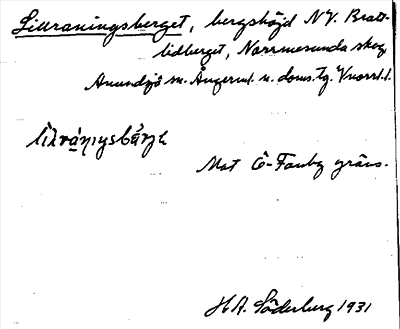 Lillraningsberget, bergshöjd NV. Bratt-
lidberget, Norrmesunda skog
Anundsjö sn. Ångerml. n. doms. tg. Vnorrl. l.
Mot Ö-Fanby gräns.
H A. Söderberg 1931